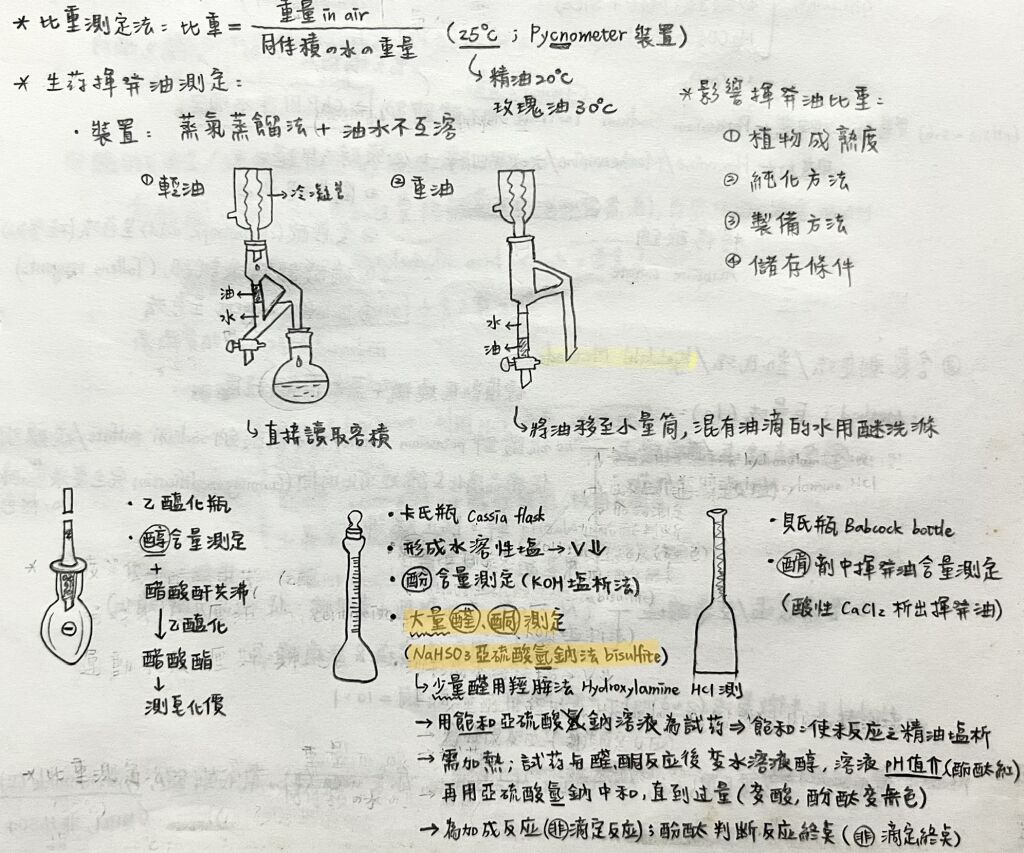 * 比重測定法：比重 = 重量 in air / 同体積の水の重量 (25°C ; Pycnometer 裝置)
↳ 精油20°C
玫瑰油30°C
* 生药揮發油測定：
· 裝置：蒸氣蒸餾法 + 油水不互溶
① 輕油
→冷凝管
油←
水←
↳直接讀取容積
② 重油
水←
油←
↳將油移至小量筒，混有油滴的水用醚洗滌
*影響揮發油比重：
① 植物成熟度
② 純化方法
③ 製備方法
④ 儲存條件
· 乙醯化瓶
· 醇含量測定
+
醋酸酐煮沸
↓乙醯化
醋酸酯
↓
測皂化價
· 卡氏瓶 Cassia flask
· 形成水溶性塩 → V↓
· 酚含量測定 (KOH塩析法)
· 大量醛、酮測定
(NaHSO3 亞硫酸氫鈉法 bisulfite)
↳少量醛用羥胺法 Hydroxylamine HCl 測
→用飽和亞硫酸鈉溶液為試药⇒飽和：使未反应之精油塩析
→需加熱；試药与醛、酮反应後变水溶液醇，溶液 pH值介(酚酞紅)
→再用亞硫酸氫鈉中和，直到过量(变酸，酚酞变無色)
→為加成反应(非滴定反应)；酚酞判斷反应終点(非滴定終点)
· 貝氏瓶 Babcock bottle
· 酯劑中揮發油含量測定
(酸性 CaCl2 析出揮發油)